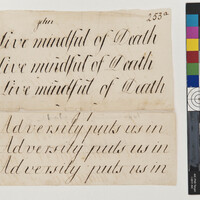 253a
Live mindful of Death
Live mindful of Death
Live mindful of Death
Adversity puts us in
Adversity puts us in
Adversity puts us in